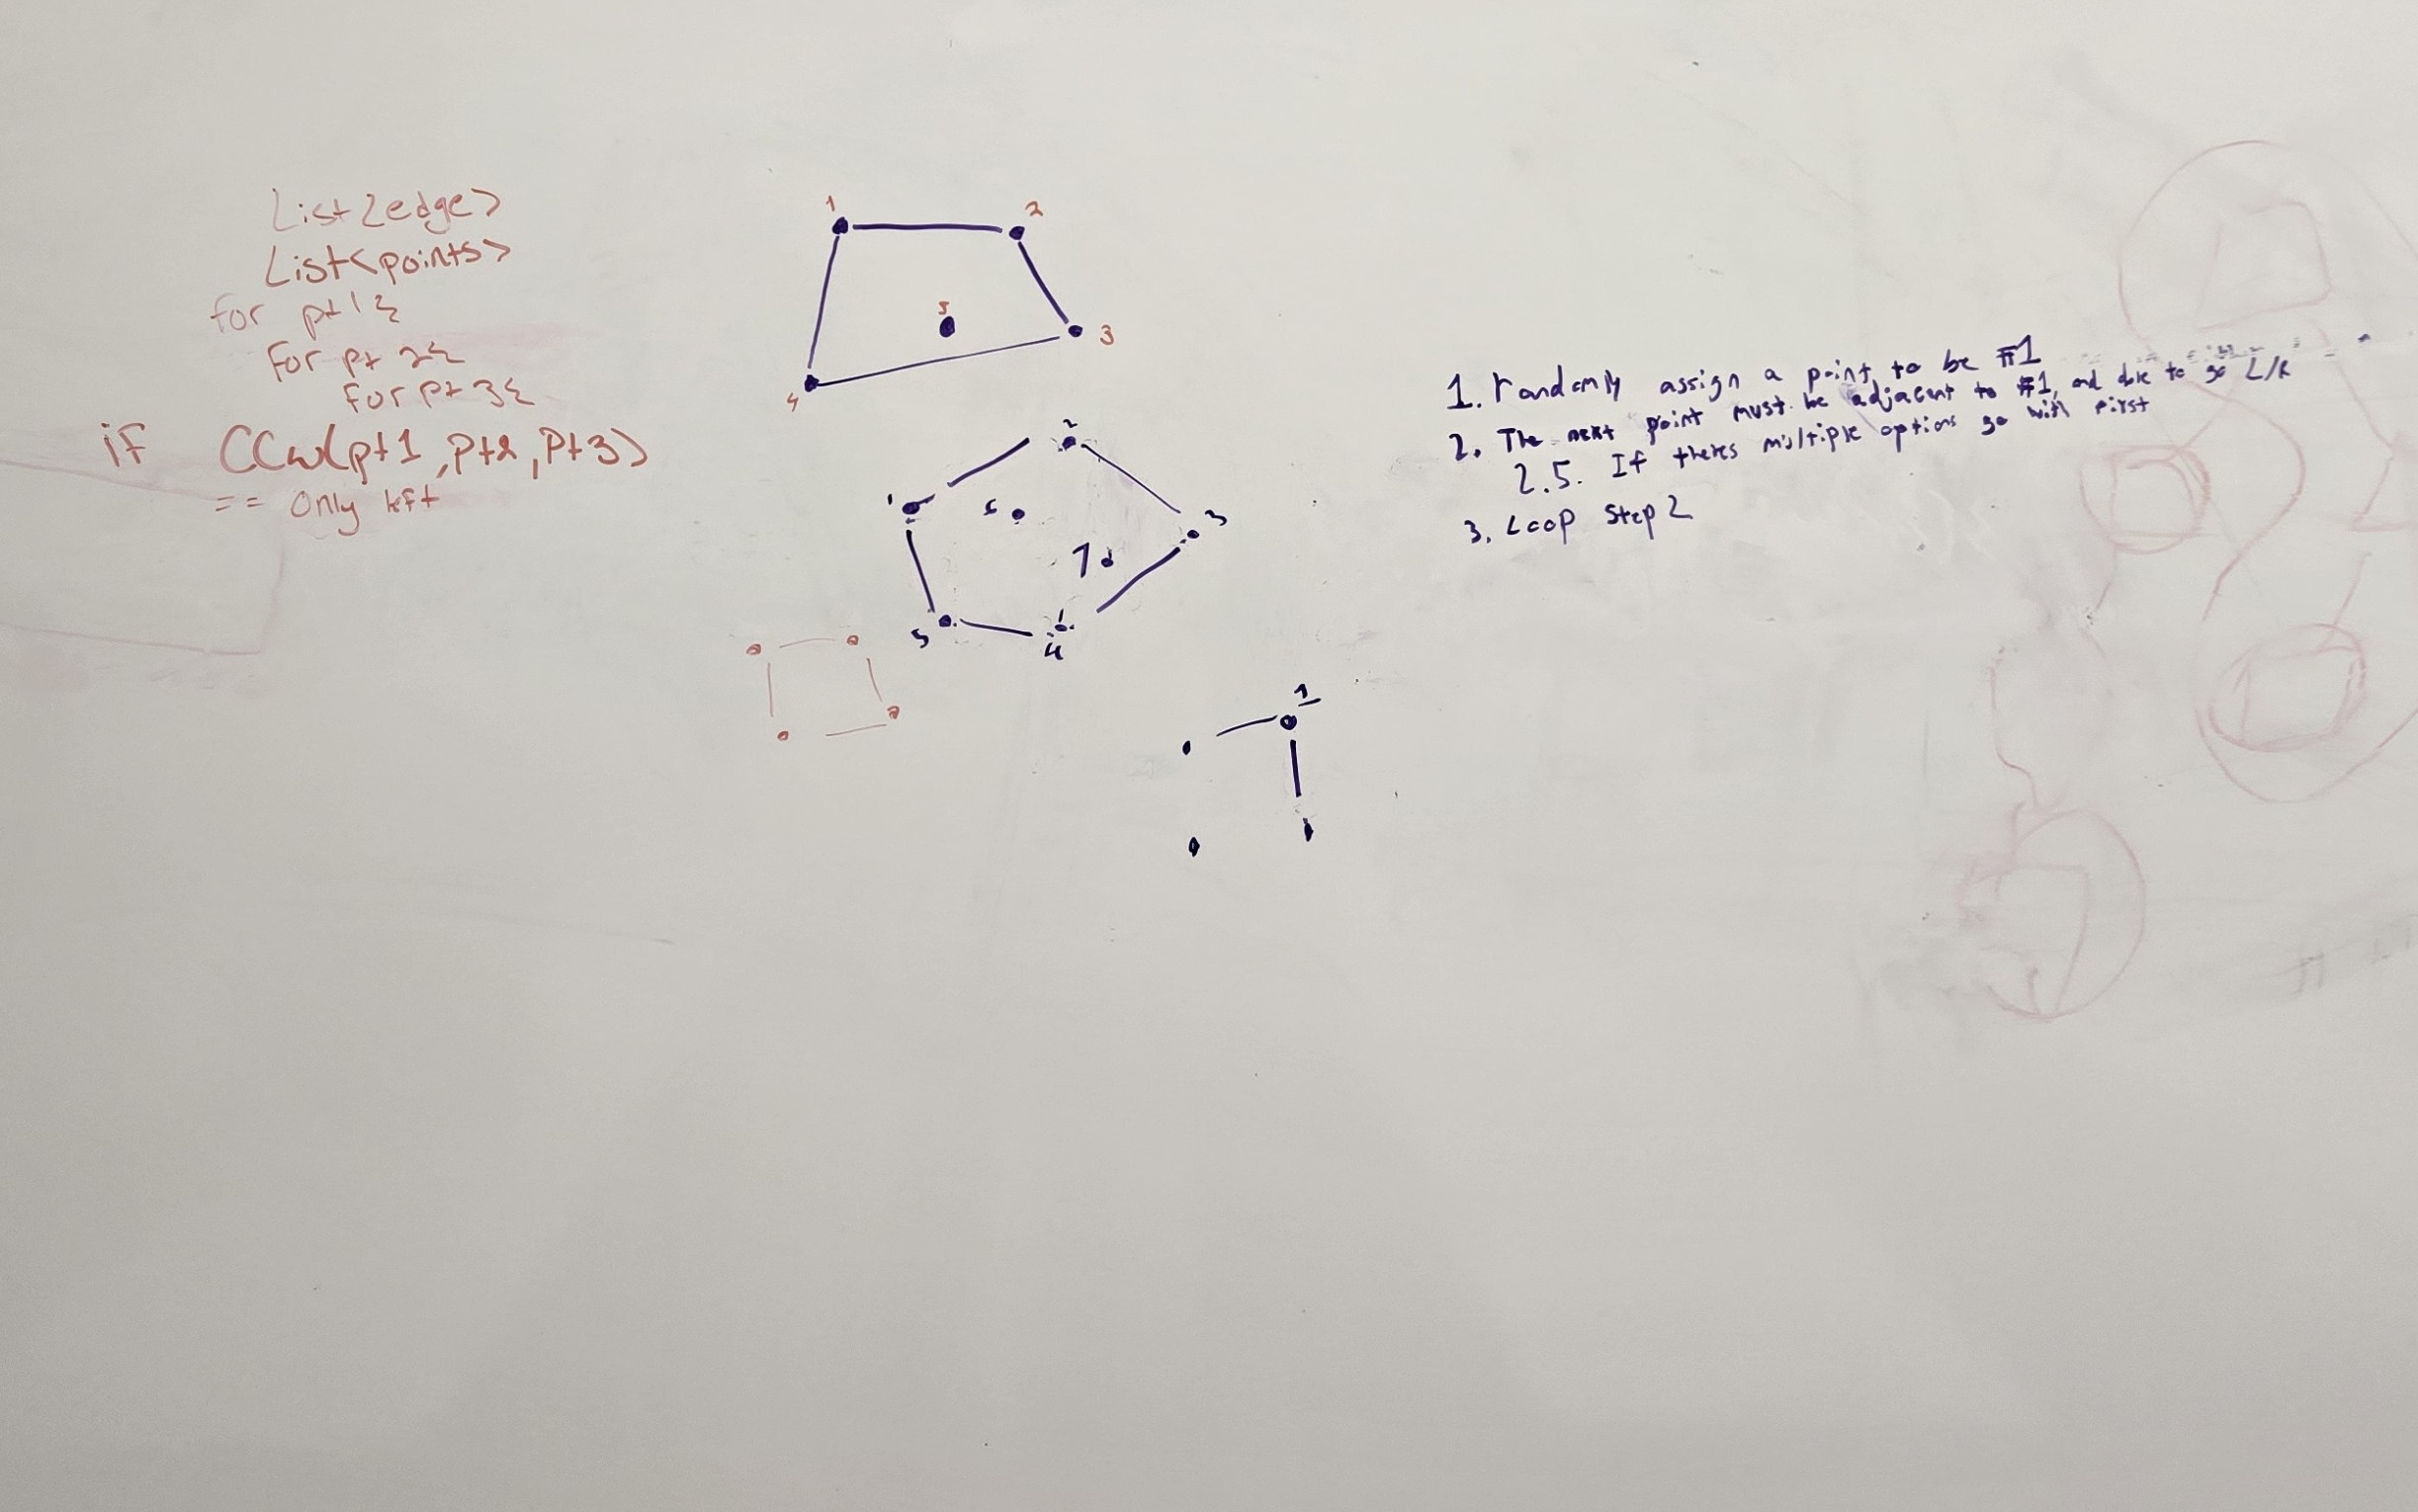 List<edge>
List<points>
for pt1{
for pt 2{
for pt 3{
if CCW(pt1, pt2, pt3)
== only left
1
2
5
3
4
2
1
6
3
7
5
4
1
1. randomly assign a point to be #1
2. The next point must be adjacent to #1, and able to go L/R
2.5. If theres multiple options go with first
3. Loop Step 2